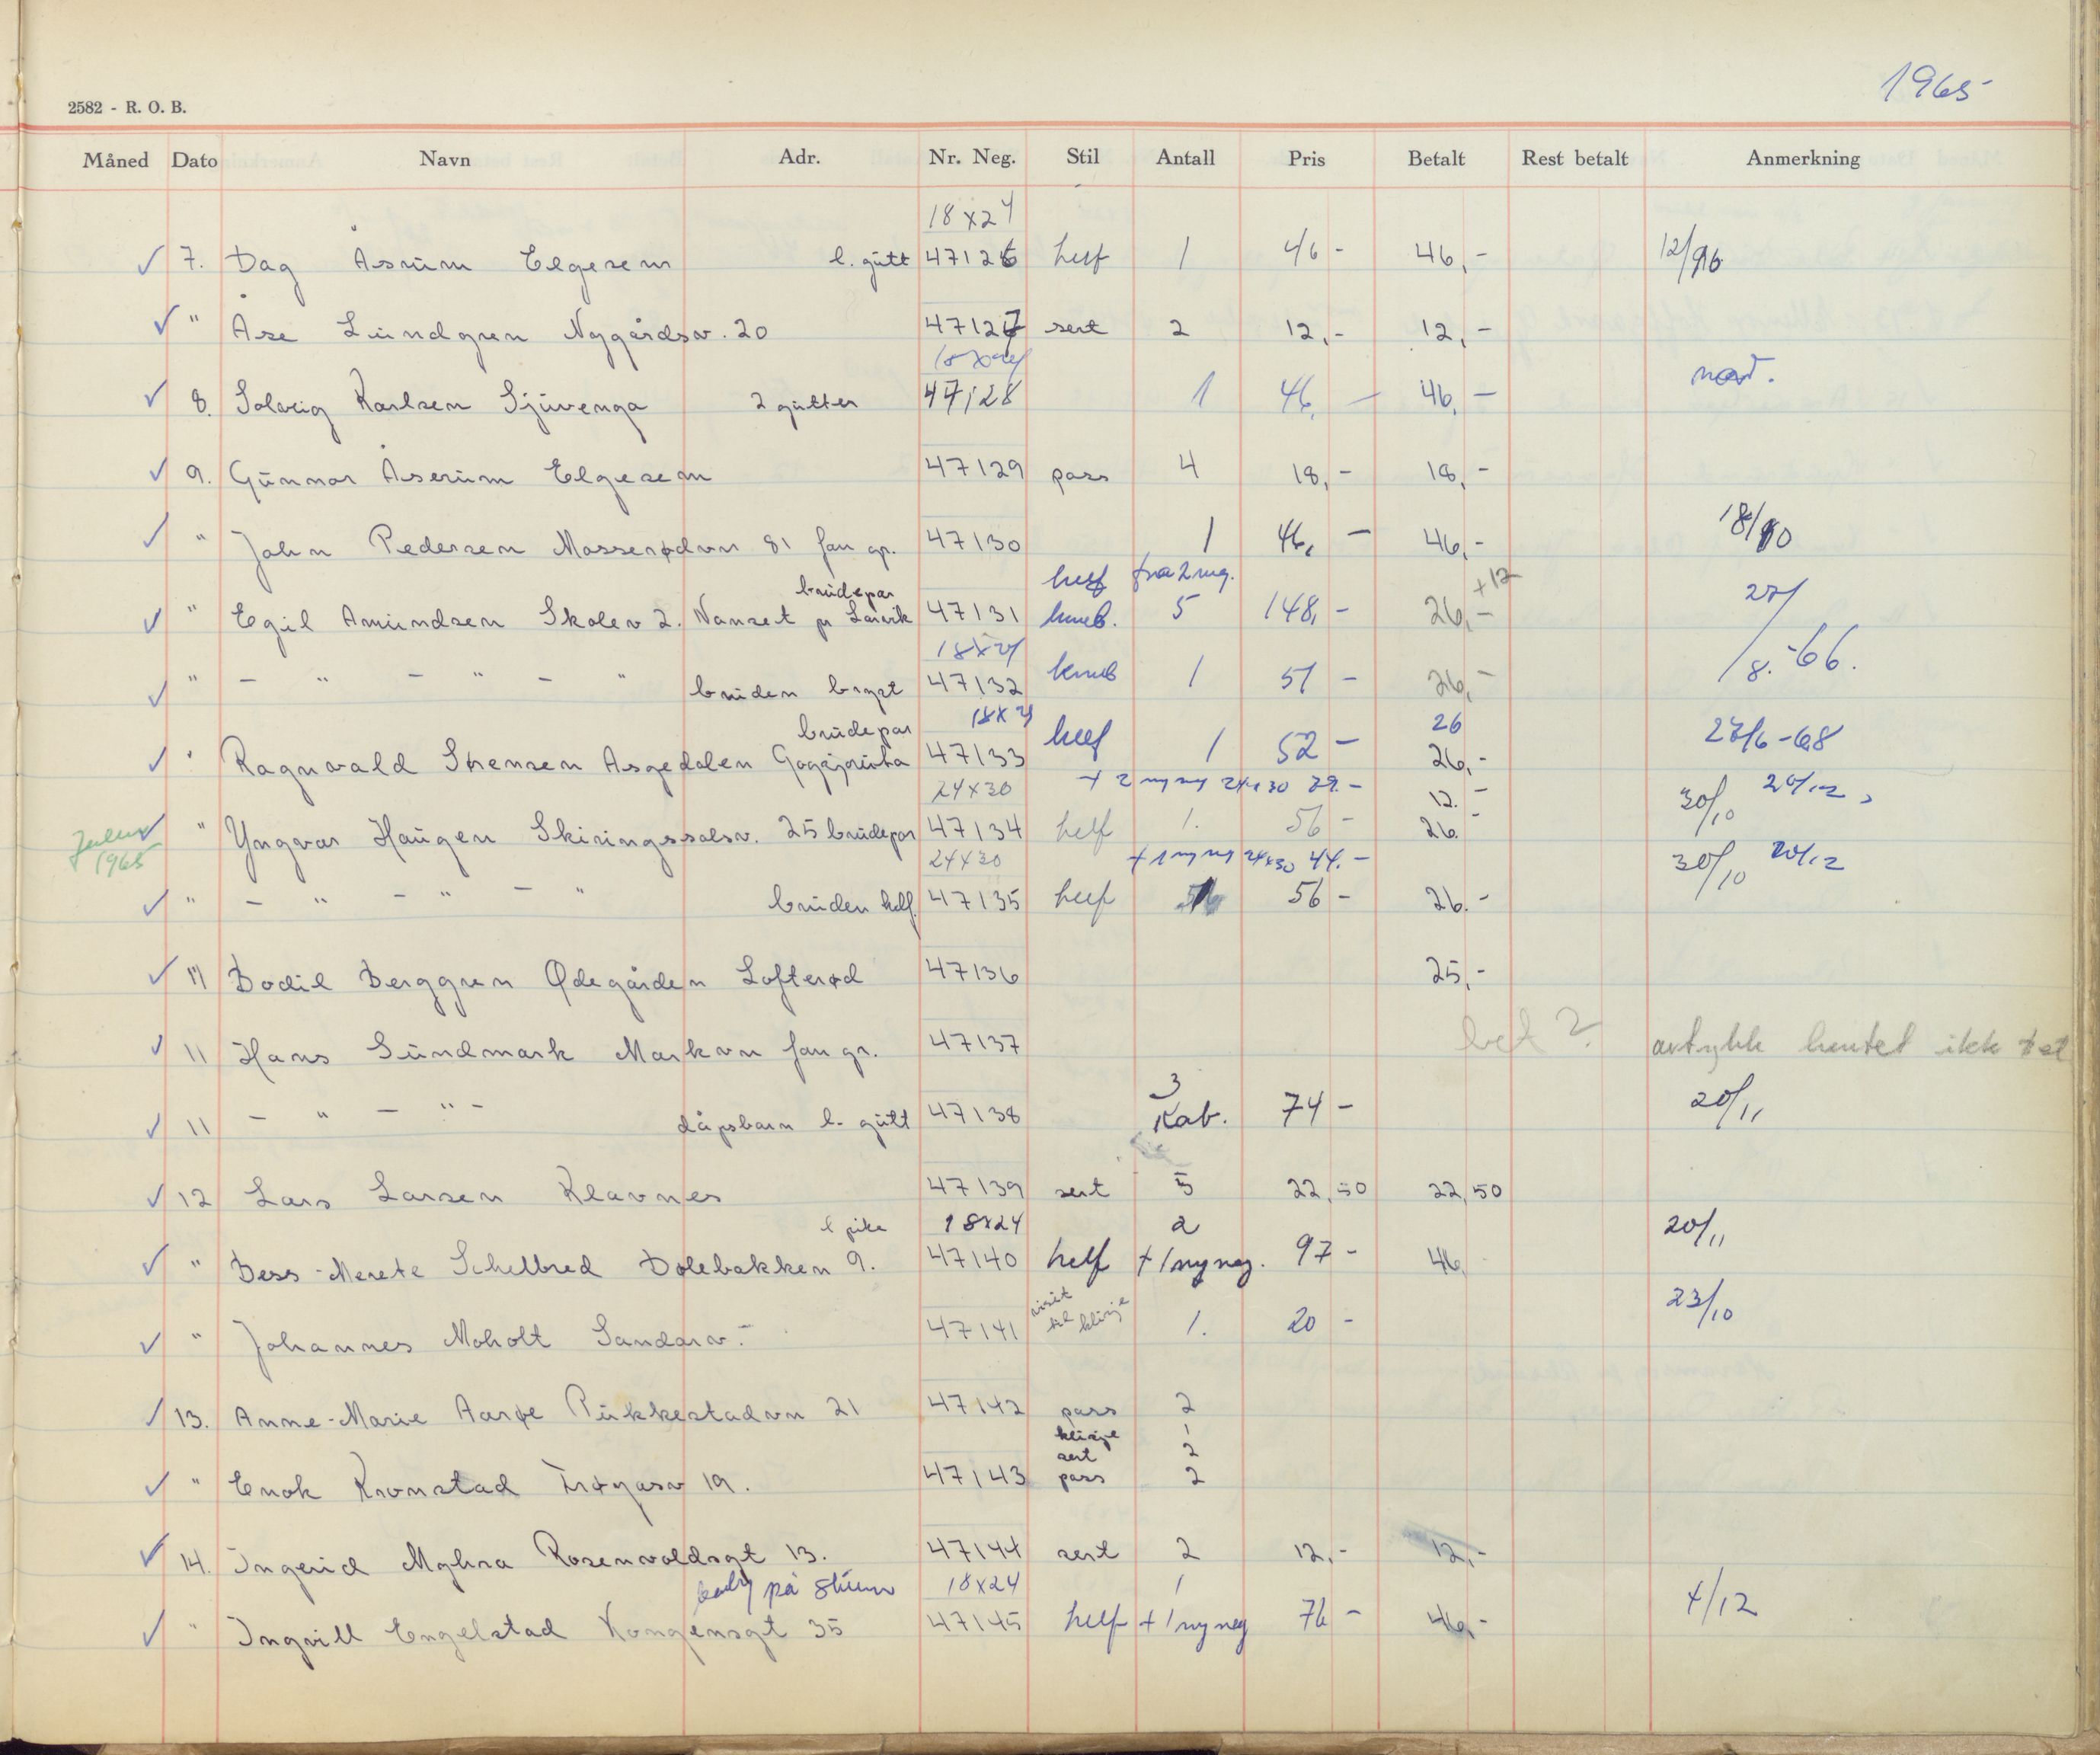 1965
2582 - R. O. B.
Måned Dato Navn Adr. Nr. Neg. Stil Antall Pris Betalt Rest betalt Anmerkning
18x24
✓ 7. Dag Åsrum Elgesem l. gutt 47126 helf 1 46 - 46,-
✓ " Åse Lundgren Nygårdsv. 20 47127 sert 2 12,- 12,-
18x24
✓ 8. Solveig Karlsen Sjuvenga 2 gutter 47128 1 46,- 46,-
✓ 9. Gunnar Åserum Elgesem 47129 pass 4 18,- 18,-
✓ " John Pedersen Masserødvn 81 fam gr. 47130 1 46,- 46,- 18/10
helf fra 2 neg. +12
brudepar
✓ " Egil Amundsen Skolev 2. Nanset pr Larvik 47131 kneb. 5 148,- 26,- 27/8.-66.
18x24
✓ " - " - " - " bruden bryst 47132 kneb 1 51 - 26,-
brudepar 18x24 26
✓ " Ragnvald Sørensen Åsgedalen 47133 helf 1 52 - 26,- 27/6-68
24x30 + 2 ny neg 24x30 89.- 12.-
✓ " Yngvar Haugen Skiringssalsv. 25 brudepar 47134 helf 1. 56 - 26.- 30/10 20/12
1965
24x30 + 1 ny neg 24x30 44.-
✓ " - " - " - " bruden helf. 47135 helf 56 - 26.- 30/10 20/12
✓ 11 Bodil Berggren Ødegården Løfterød 47136 25,-
✓ 11 Hans Sundmark Markvn fam gr. 47137 bet? avtrykk hentet ikke
✓ 11 - " - " - dåpsbarn l. gutt 47138 3 Kab. 74 - 20/11
✓ 12 Lars Larsen Klavnes 47139 sert 5 22,50 22,50
l pike 18x24 2
✓ " Bess-Merete Schelbred Dølebakken 9. 47140 helf + 1 ny neg. 97 - 46, 20/11
✓ " Johannes Moholt Sandarv. - 47141 visit til klisje 1. 20 - 23/10
✓ 13. Anne-Marie Aarøe Pukkestadvn 21 47142 pass 2
klisje 1
sert 2
✓ " Enok Kronstad Frøyasv 19. 47143 pass 2
✓ 14. Ingerid Myhra Rosenvoldsgt 13. 47144 sert 2 12,- 12,-
baby på 18x24 1
✓ " Ingvill Engelstad Kongensgt 35 47145 helf + 1 ny neg 76 - 46,- 4/12